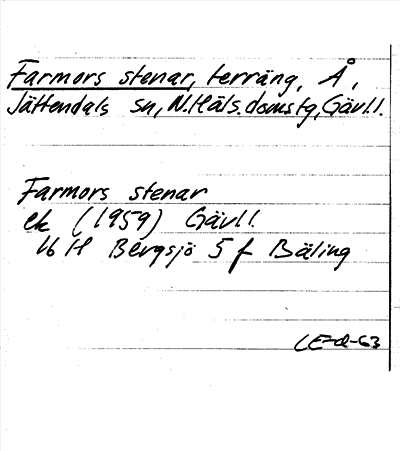 Farmors stenar, terräng, Å,
Jättendals sn, N. Häls. doms tg, Gävl l.
Farmors stenar
ek (1959) Gävl l.
16 H Bergsjö 5 f Bäling